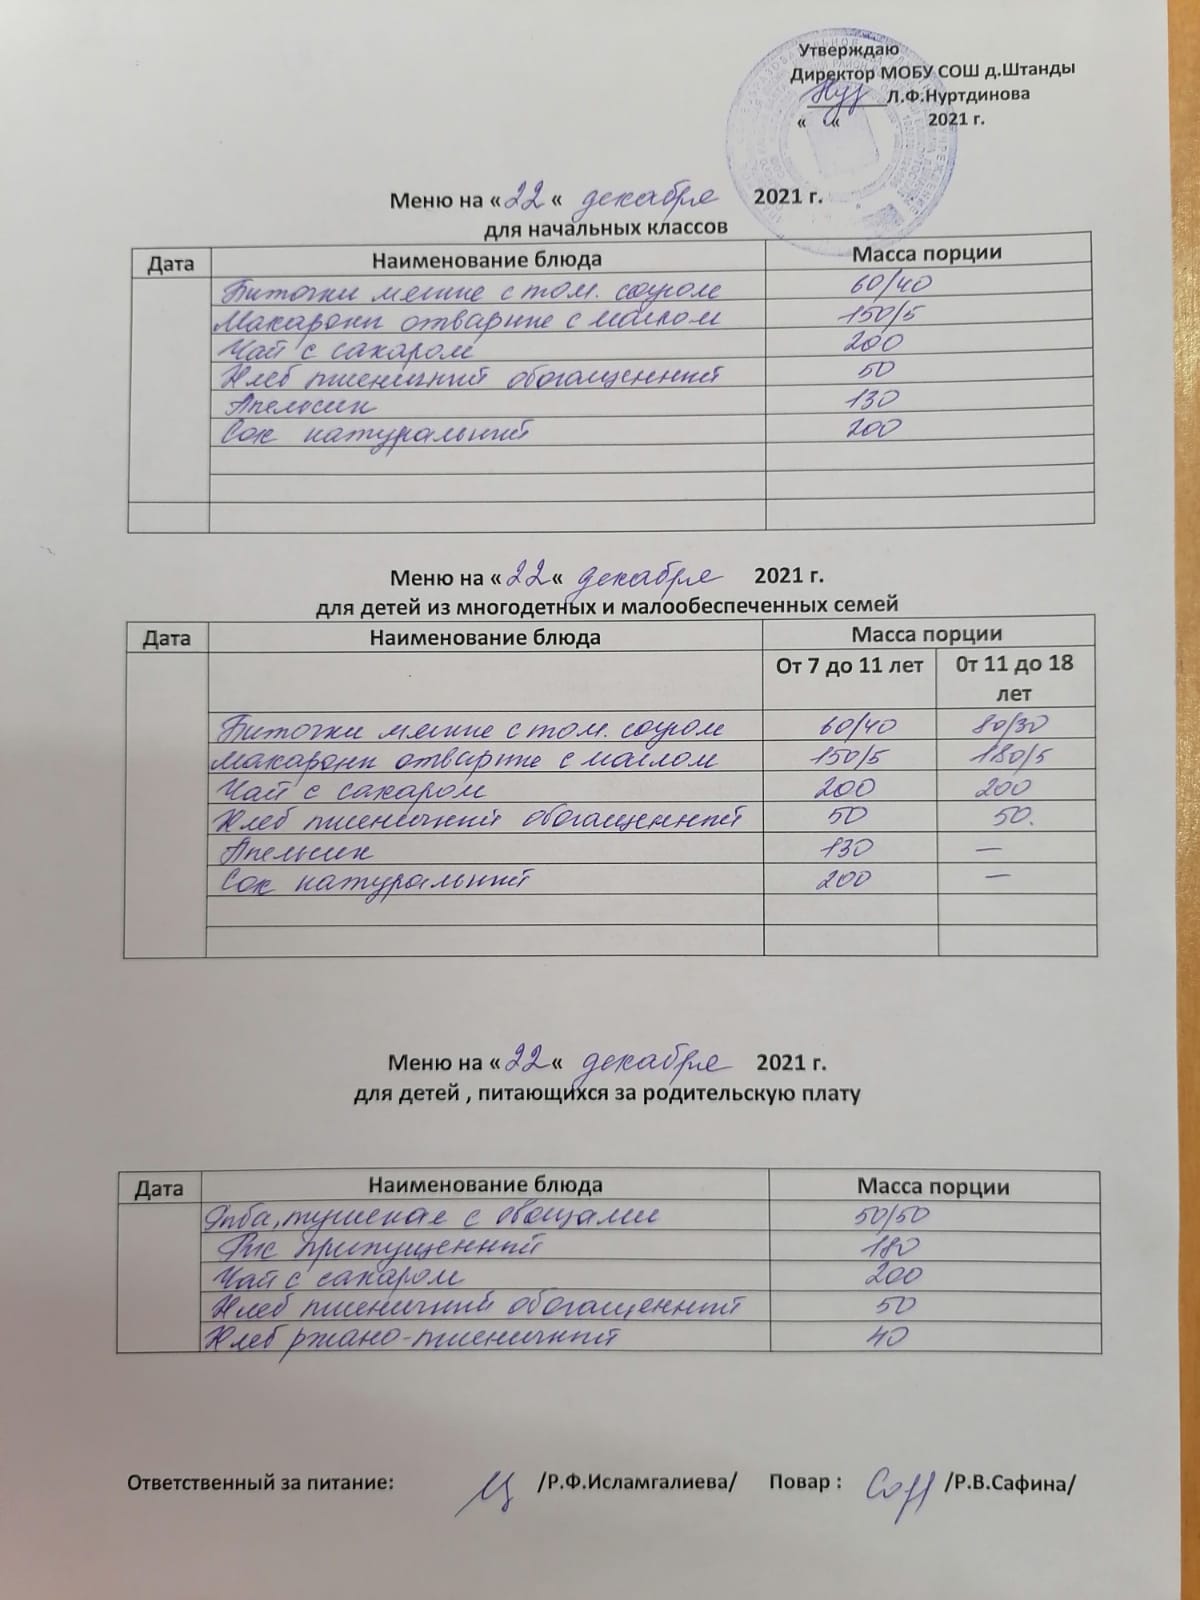 Утверждаю
Директор МОБУ СОШ д.Штанды
Л.Ф.Нуртдинова
« « 2021 г.
Меню на « 22 « декабря 2021 г.
для начальных классов
Дата Наименование блюда Масса порции
Биточки мясные с том. соусом 60/40
Макароны отварные с маслом 150/5
Чай с сахаром 200
Хлеб пшеничный обогащенный 50
Апельсин 130
Сок натуральный 200
Меню на « 22 « декабря 2021 г.
для детей из многодетных и малообеспеченных семей
Дата Наименование блюда Масса порции
От 7 до 11 лет 0т 11 до 18 лет
Биточки мясные с том. соусом 60/40 80/30
Макароны отварные с маслом 150/5 180/5
Чай с сахаром 200 200
Хлеб пшеничный обогащенный 50 50.
Апельсин 130 —
Сок натуральный 200 —
Меню на « 22 « декабря 2021 г.
для детей , питающихся за родительскую плату
Дата Наименование блюда Масса порции
Рыба, тушеная с овощами 50/50
Рис припущенный 180
Чай с сахаром 200
Хлеб пшеничный обогащенный 50
Хлеб ржано-пшеничный 40
Ответственный за питание: /Р.Ф.Исламгалиева/ Повар : /Р.В.Сафина/